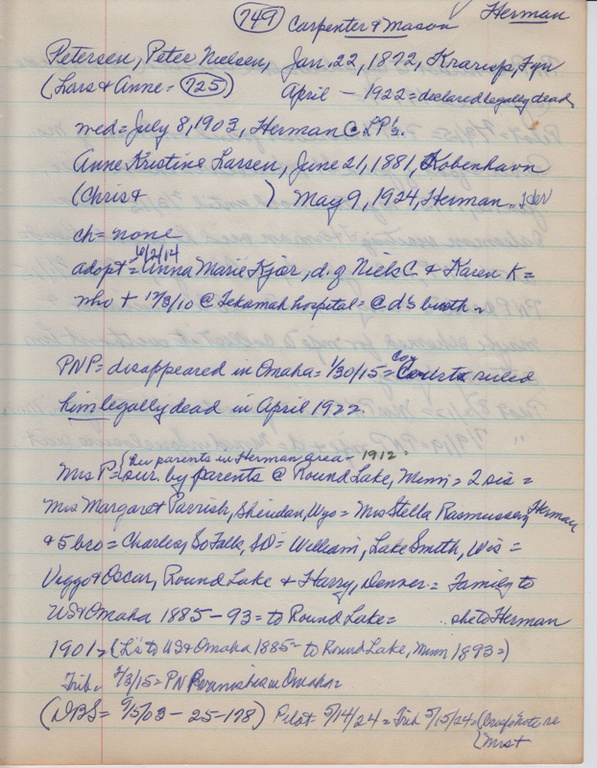 749 Carpenter & Mason Herman
Petersen, Peter Nielsen, Jan. 22, 1872, Krarup, Fyn
(Lars & Anne = 725) April – 1922 = declared legally dead
med = July 8, 1903, Herman @ LP's.
Anne Kristine Larsen, June 21, 1881, Kobenhavn
(Chris & ) May 9, 1924, Herman
ch = none
adopt = 6/2/14 Anna Marie Kjar, d. of Niels C. & Karen K =
who + 12/3/10 @ Tekamah hospital = @ d's birth.
PNP = disappeared in Omaha = 1/30/15 = Coy Courts ruled
him legally dead in April 1922.
Mrs P = {her parents in Herman area = 1912.
sur. by parents @ Round Lake, Minn = 2 sis =
Mrs Margaret Parrish, Sheridan, Wyo = Mrs Stella Rasmussen, Herman
& 5 bro = Charles, So Falls, SD = William, Lake Smith, Wis =
Viggo & Oscar, Round Lake & Harry, Denver = Family to
US & Omaha 1885–93 = to Round Lake = she to Herman
1901 = (L's to US & Omaha 1885 – to Round Lake, Minn 1893 =)
Trib = 2/3/15 = PN P vanishes in Omaha =
(DBS = 9/5/03 – 25-178) Pilot = 5/14/24 = Trib 5/15/24 =
(Mrs +